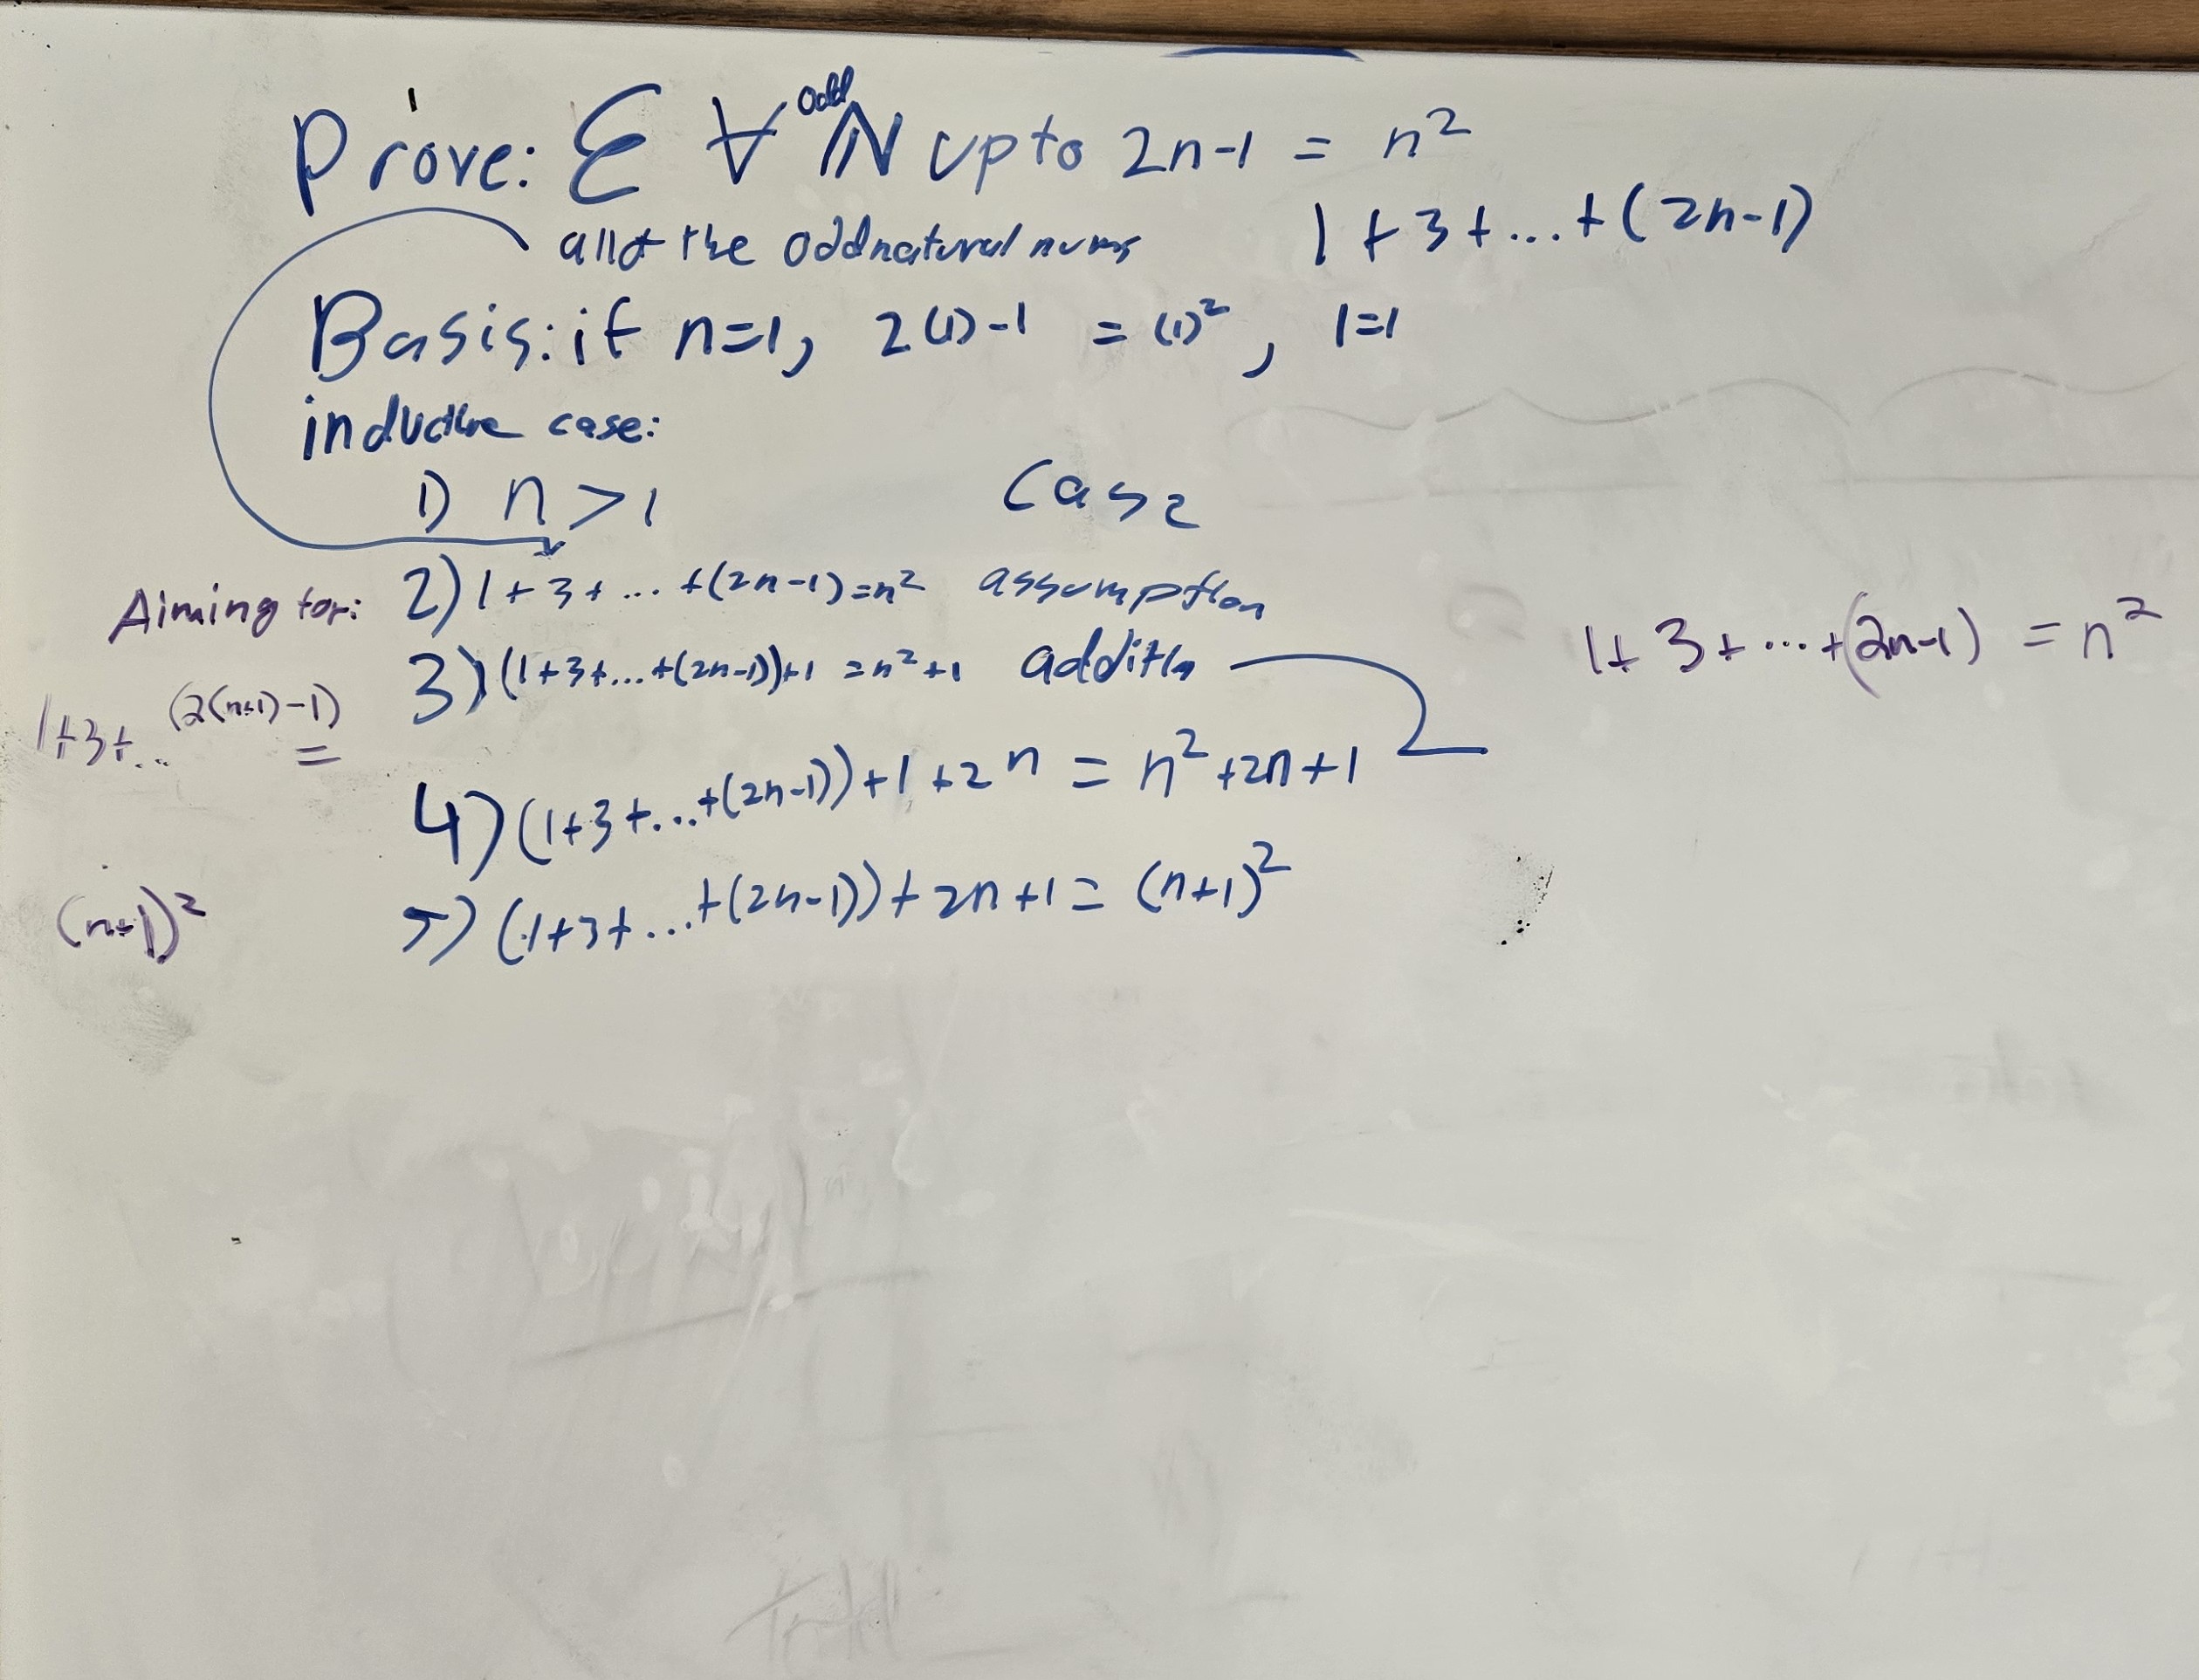 Prove: Σ ∀ odd ℕ up to 2n-1 = n²
all of the odd natural nums
1 + 3 + ... + (2n-1)
Basis: if n=1, 2(1)-1 = (1)², 1=1
inductive case:
1) n > 1 Case
2) 1 + 3 + ... + (2n-1) = n² assumption
3) (1+3+...+(2n-1))+1 = n²+1 addition
4) (1+3+...+(2n-1))+1+2n = n²+2n+1
5) (1+3+...+(2n-1))+2n+1 = (n+1)²
Aiming for:
1+3+... (2(n+1)-1)
=
(n+1)²
1+3+...+(2n-1) = n²